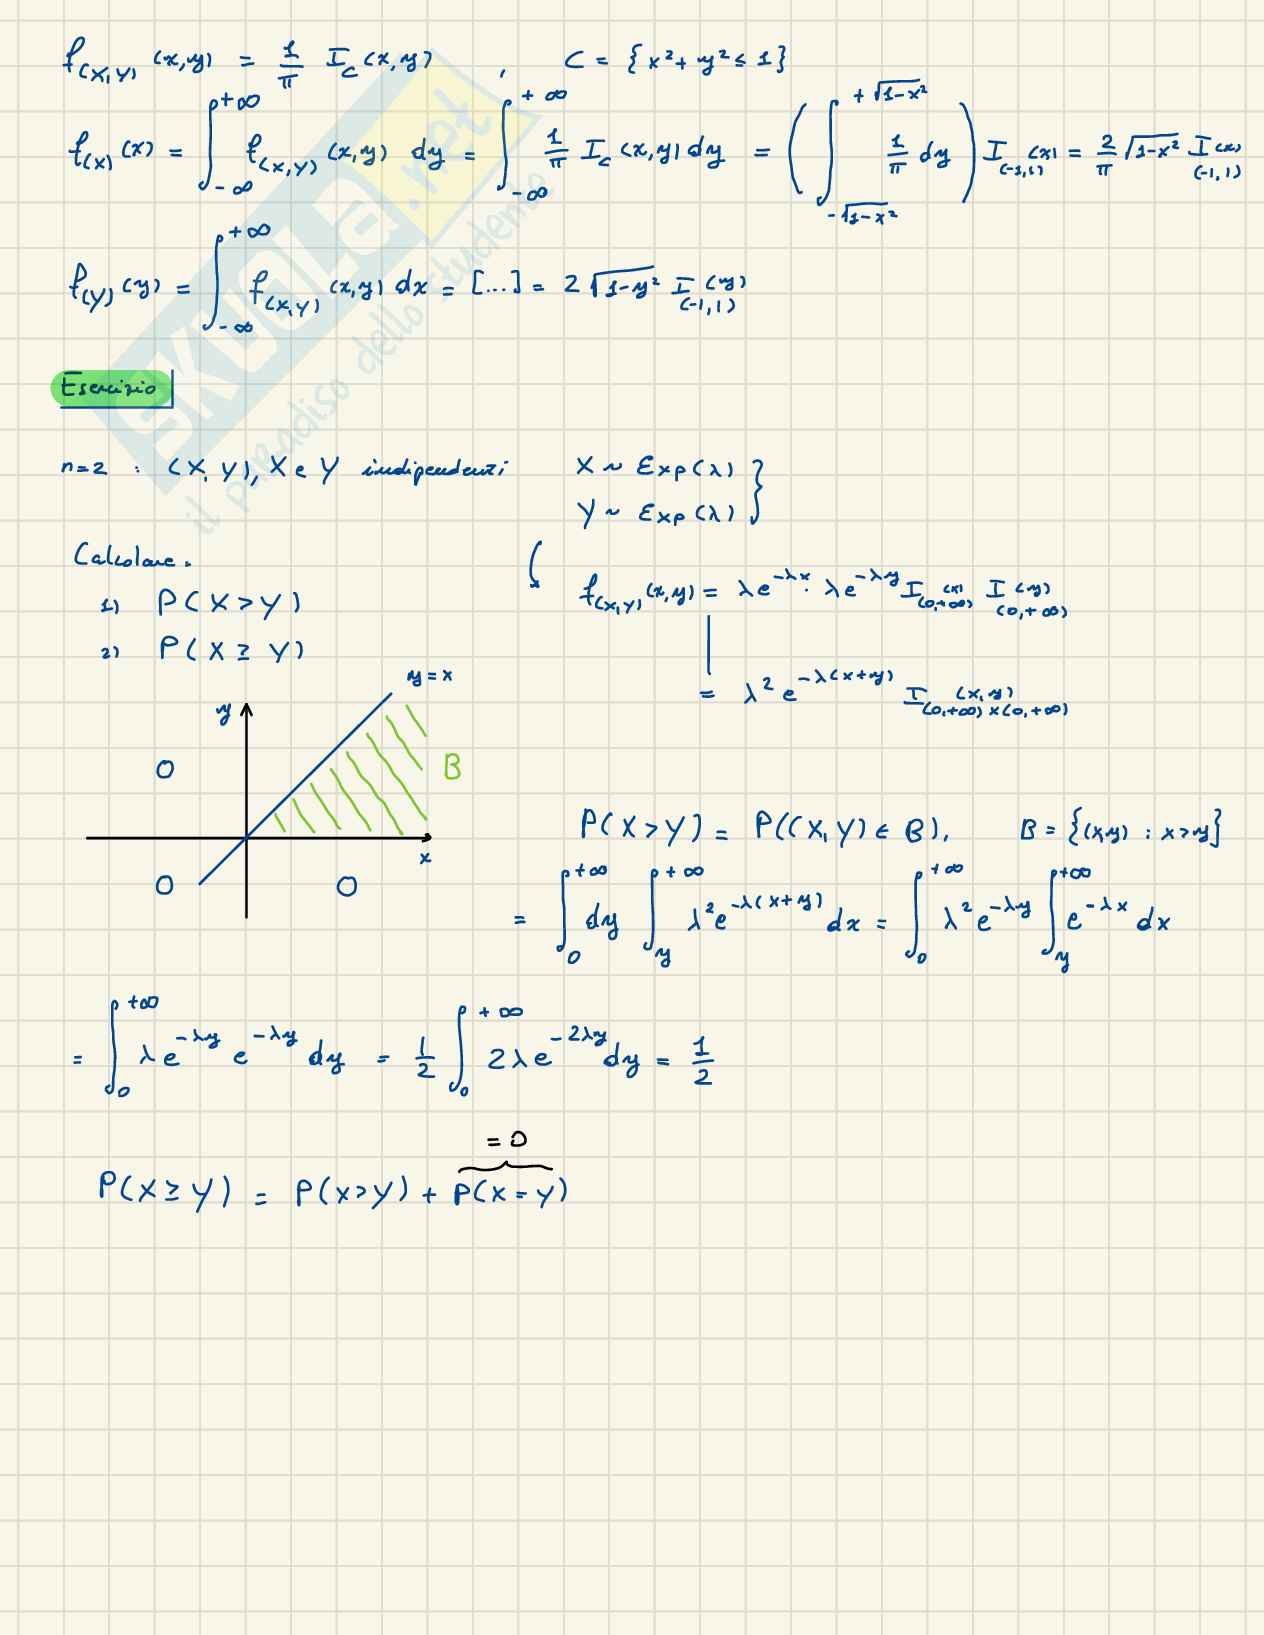 f_(X,Y) (x,y) = 1/π I_C (x,y) , C = {x² + y² ≤ 1}
f_(X) (x) = ∫_{-∞}^{+∞} f_(X,Y) (x,y) dy = ∫_{-∞}^{+∞} 1/π I_C (x,y) dy = ( ∫_{-√(1-x²)}^{+√(1-x²)} 1/π dy ) I_(-1,1) (x) = 2/π √(1-x²) I_(-1,1) (x)
f_(Y) (y) = ∫_{-∞}^{+∞} f_(X,Y) (x,y) dx = [...] = 2 √(1-y²) I_(-1,1) (y)
SKUOLA.net
il paradiso dello studente
Esercizio
n=2 : (X,Y), X e Y indipendenti X ~ Exp(λ) }
Y ~ Exp(λ)
Calcolare.
f_(X,Y) (x,y) = λe^{-λx} · λe^{-λy} I_(0,+∞) (x) I_(0,+∞) (y)
1) P(X > Y)
2) P(X ≥ Y)
= λ² e^{-λ(x+y)} I_(0,+∞)×(0,+∞) (x,y)
y = x
y
0
B
x
0 0
P(X > Y) = P((X,Y) ∈ B), B = {(x,y) : x>y}
= ∫_0^{+∞} dy ∫_y^{+∞} λ²e^{-λ(x+y)} dx = ∫_0^{+∞} λ²e^{-λy} ∫_y^{+∞} e^{-λx} dx
= ∫_0^{+∞} λe^{-λy} e^{-λy} dy = 1/2 ∫_0^{+∞} 2λe^{-2λy} dy = 1/2
= 0
P(X ≥ Y) = P(X>Y) + P(X = Y)